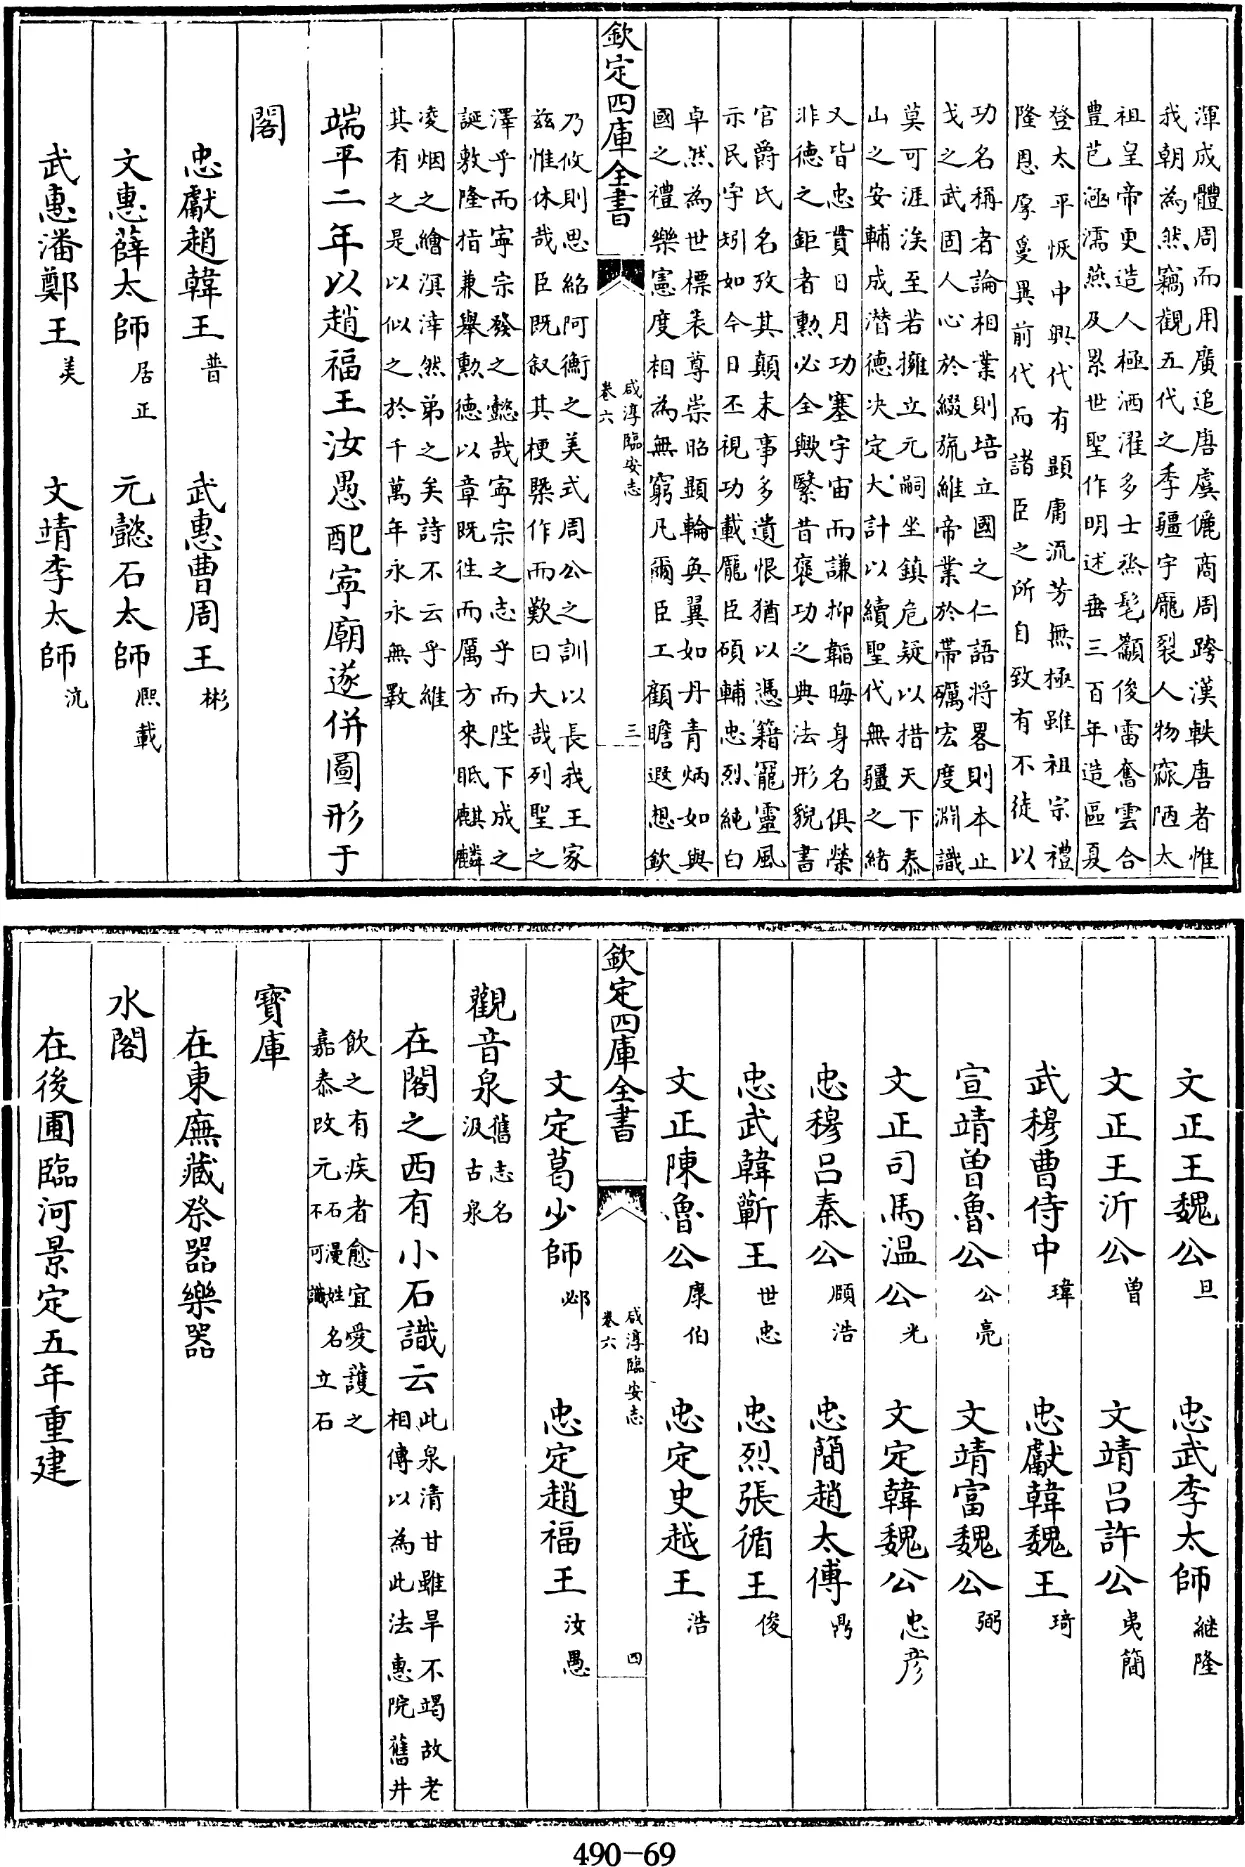 渾成體周而用廣追唐虞儷商周跨漢軼唐者惟
我朝為然竊觀五代之季疆宇龐裂人物窳陋太
祖皇帝更造人極洒濯多士烝髦顯俊雷奮雲合
豐芑涵濡燕及累世聖作明述垂三百年造區夏
登太平恢中興代有顯庸流芳無極雖祖宗禮
隆恩厚敻異前代而諸臣之所自致有不徒以
功名稱者論相業則培立國之仁語將畧則本止
戈之武固人心於綴旒維帝業於帶礪宏度淵識
莫可涯涘至若擁立元嗣坐鎮危疑以措天下泰
山之安輔成潜德决定大計以續聖代無疆之緒
又皆忠貫日月功塞宇宙而謙抑韜晦身名俱榮
非德之鉅者勲必全歟繄昔褒功之典法形貌書
官爵氏名攷其顛末事多遺恨猶以憑籍寵靈風
示民字矧如今日丕視功載龎臣碩輔忠烈純白
卓然為世標表尊崇昭顯輪奐翼如丹青炳如與
國之禮樂憲度相為無窮凡爾臣工顧瞻遐想欽
欽定四庫全書
咸淳臨安志
卷六
三
乃攸則思紹阿衡之美式周公之訓以長我王家
兹惟休哉臣既叙其梗槩作而歎曰大哉列聖之
澤乎而寧宗發之懿哉寧宗之志乎而陛下成之
誕敷隆指兼舉勲德以章既徃而厲方來眂麒麟
凌烟之繪淟涬然弟之矣詩不云乎維
其有之是以似之於千萬年永永無斁
端平二年以趙福王汝愚配寧廟遂併圖形于
閣
忠獻趙韓王普 武惠曹周王彬
文惠薛太師居正 元懿石太師熙載
武惠潘鄭王美 文靖李太師沆
文正王魏公旦 忠武李太師繼隆
文正王沂公曽 文靖吕許公夷簡
武穆曹侍中瑋 忠獻韓魏王琦
宣靖曽魯公公亮 文靖富魏公弼
文正司馬温公光 文定韓魏公忠彦
忠穆吕秦公頤浩 忠簡趙太傅鼎
忠武韓蘄王世忠 忠烈張循王俊
文正陳魯公康伯 忠定史越王浩
欽定四庫全書
咸淳臨安志
卷六
四
文定葛少師邲 忠定趙福王汝愚
觀音泉舊志名
汲古泉
在閣之西有小石識云此泉清甘雖旱不竭故老
相傳以為此法惠院舊井
飲之有疾者愈宜愛護之
嘉泰改元石漫姓
不可識名立石
寶庫
在東廡藏祭器樂器
水閣
在後圃臨河景定五年重建
490-69